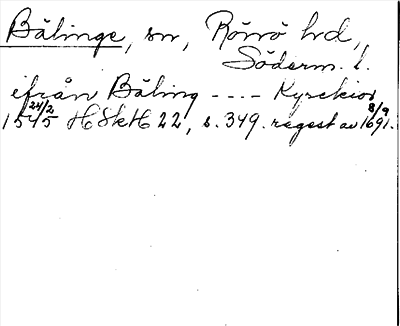 Bälinge, sn, Rönö hd,
Söderm. l.
ifrån Bäling ---- Kyrckior
24/2 1545 HSkH 22, s. 349. regest av 8/9 1691.